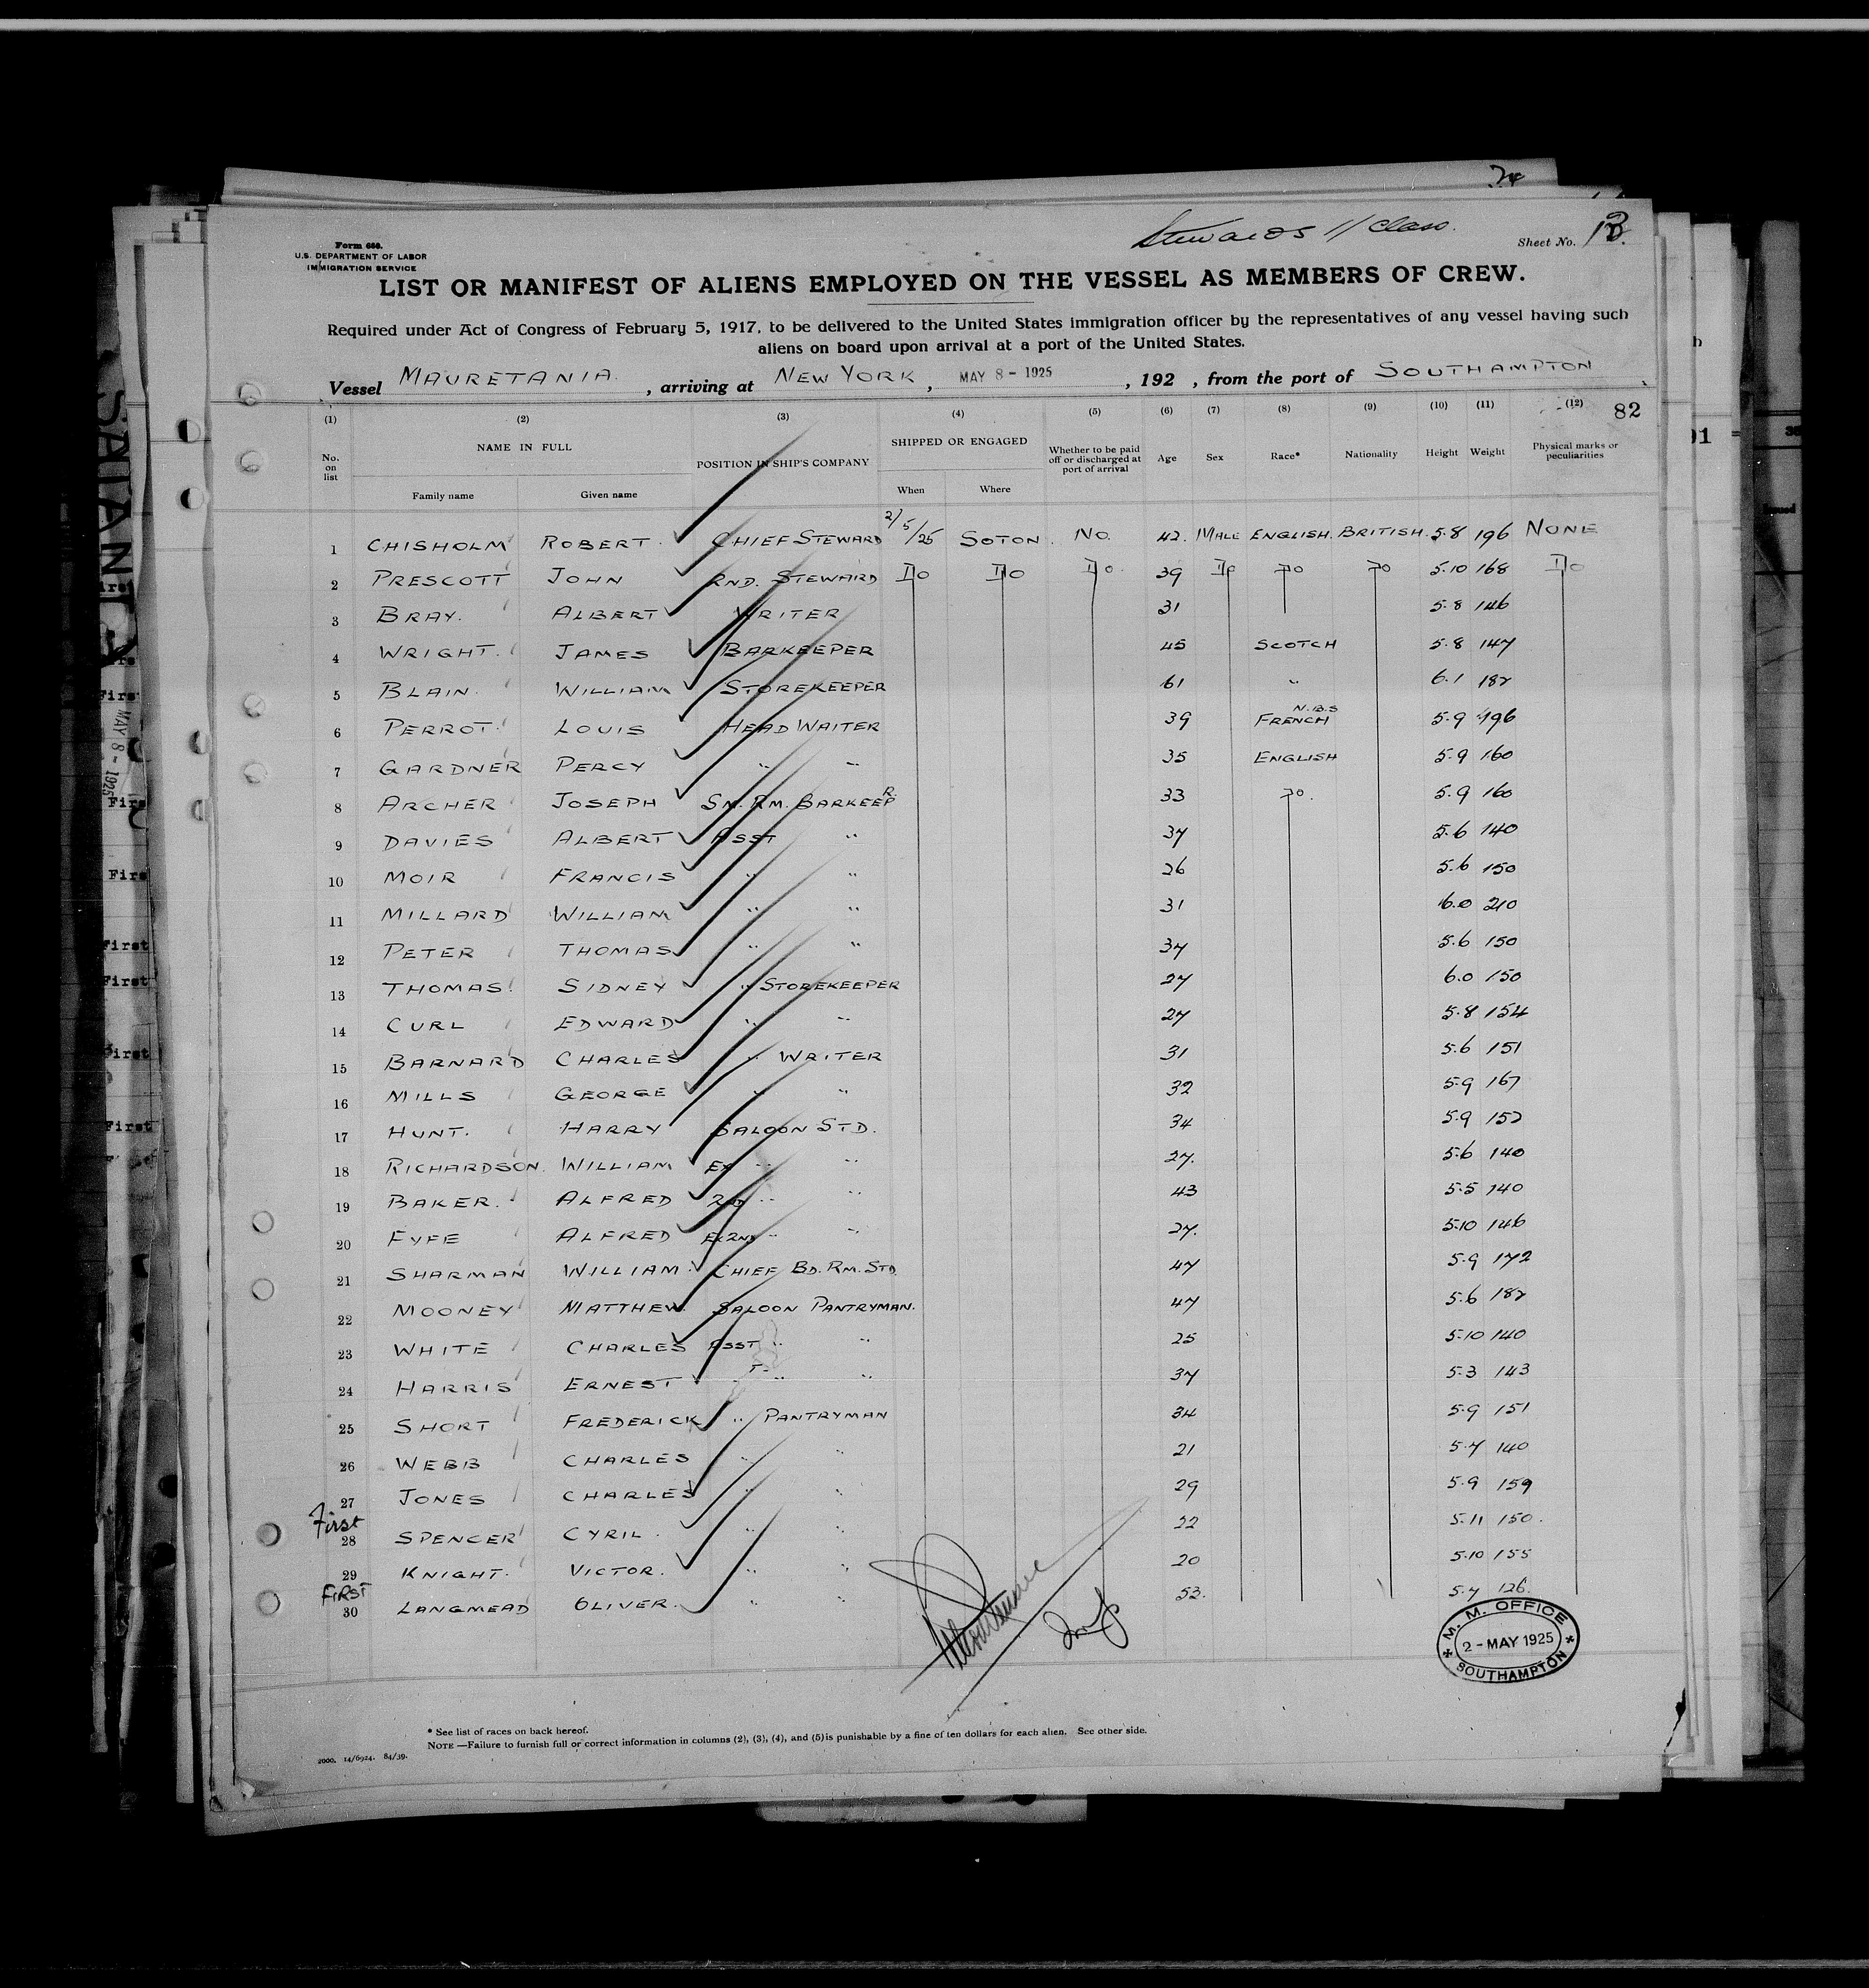 Stewards 1/Class.
Form 686.
U.S. DEPARTMENT OF LABOR
IMMIGRATION SERVICE
Sheet No.
LIST OR MANIFEST OF ALIENS EMPLOYED ON THE VESSEL AS MEMBERS OF CREW.
Required under Act of Congress of February 5, 1917, to be delivered to the United States immigration officer by the representatives of any vessel having such
aliens on board upon arrival at a port of the United States.
Vessel MAURETANIA, arriving at NEW YORK, MAY 8 - 1925, 192 , from the port of SOUTHAMPTON
(1) (2) (3) (4) (5) (6) (7) (8) (9) (10) (11) (12) 82
No. on list NAME IN FULL POSITION IN SHIP'S COMPANY SHIPPED OR ENGAGED Whether to be paid off or discharged at port of arrival Age Sex Race* Nationality Height Weight Physical marks or peculiarities
Family name Given name When Where
1 CHISHOLM ROBERT. CHIEF STEWARD 2/5/25 SOTON. NO. 42. MALE ENGLISH. BRITISH. 5.8 196 NONE
2 PRESCOTT JOHN 2ND. STEWARD DO DO DO. 39 DO DO DO 5.10 168 DO
3 BRAY. ALBERT WRITER 31 5.8 146
4 WRIGHT. JAMES BARKEEPER 45 SCOTCH 5.8 147
5 BLAIN. WILLIAM STOREKEEPER 61 " 6.1 182
6 PERROT. LOUIS HEAD WAITER 39 N.B.S FRENCH 5.9 196
7 GARDNER PERCY " " 35 ENGLISH 5.9 160
8 ARCHER JOSEPH SM. RM. BARKEEPR. 33 DO. 5.9 160
9 DAVIES ALBERT ASST " 37 5.6 140
10 MOIR FRANCIS " " 26 5.6 150
11 MILLARD WILLIAM " " 31 6.0 210
12 PETER THOMAS " " 37 5.6 150
13 THOMAS. SIDNEY " STOREKEEPER 27 6.0 150
14 CURL EDWARD " " 27 5.8 154
15 BARNARD CHARLES " WRITER 31 5.6 151
16 MILLS GEORGE " " 32 5.9 167
17 HUNT. HARRY SALOON STD. 34 5.9 152
18 RICHARDSON. WILLIAM EX " " 27. 5.6 140
19 BAKER. ALFRED 2ND " " 43 5.5 140
20 FYFE ALFRED EX 2ND " " 27. 5.10 146
21 SHARMAN WILLIAM. CHIEF BD. RM. STD. 47 5.9 172
22 MOONEY MATTHEW. SALOON PANTRYMAN. 47 5.6 182
23 WHITE CHARLES ASST " " 25 5.10 140
24 HARRIS ERNEST " " " 37 5.3 143
25 SHORT FREDERICK " PANTRYMAN 34 5.9 151
26 WEBB CHARLES " " 21 5.7 140
27 JONES CHARLES " " 29 5.9 159
First
28 SPENCER CYRIL. " " 22 5.11 150.
29 KNIGHT. VICTOR. " " 20 5.10 155
FIRST
30 LANGMEAD OLIVER. " " 53. 5.7 126.
M. M. OFFICE
2 - MAY 1925
SOUTHAMPTON
* See list of races on back hereof.
NOTE —Failure to furnish full or correct information in columns (2), (3), (4), and (5) is punishable by a fine of ten dollars for each alien. See other side.
2000. 14/6924. 84/39.